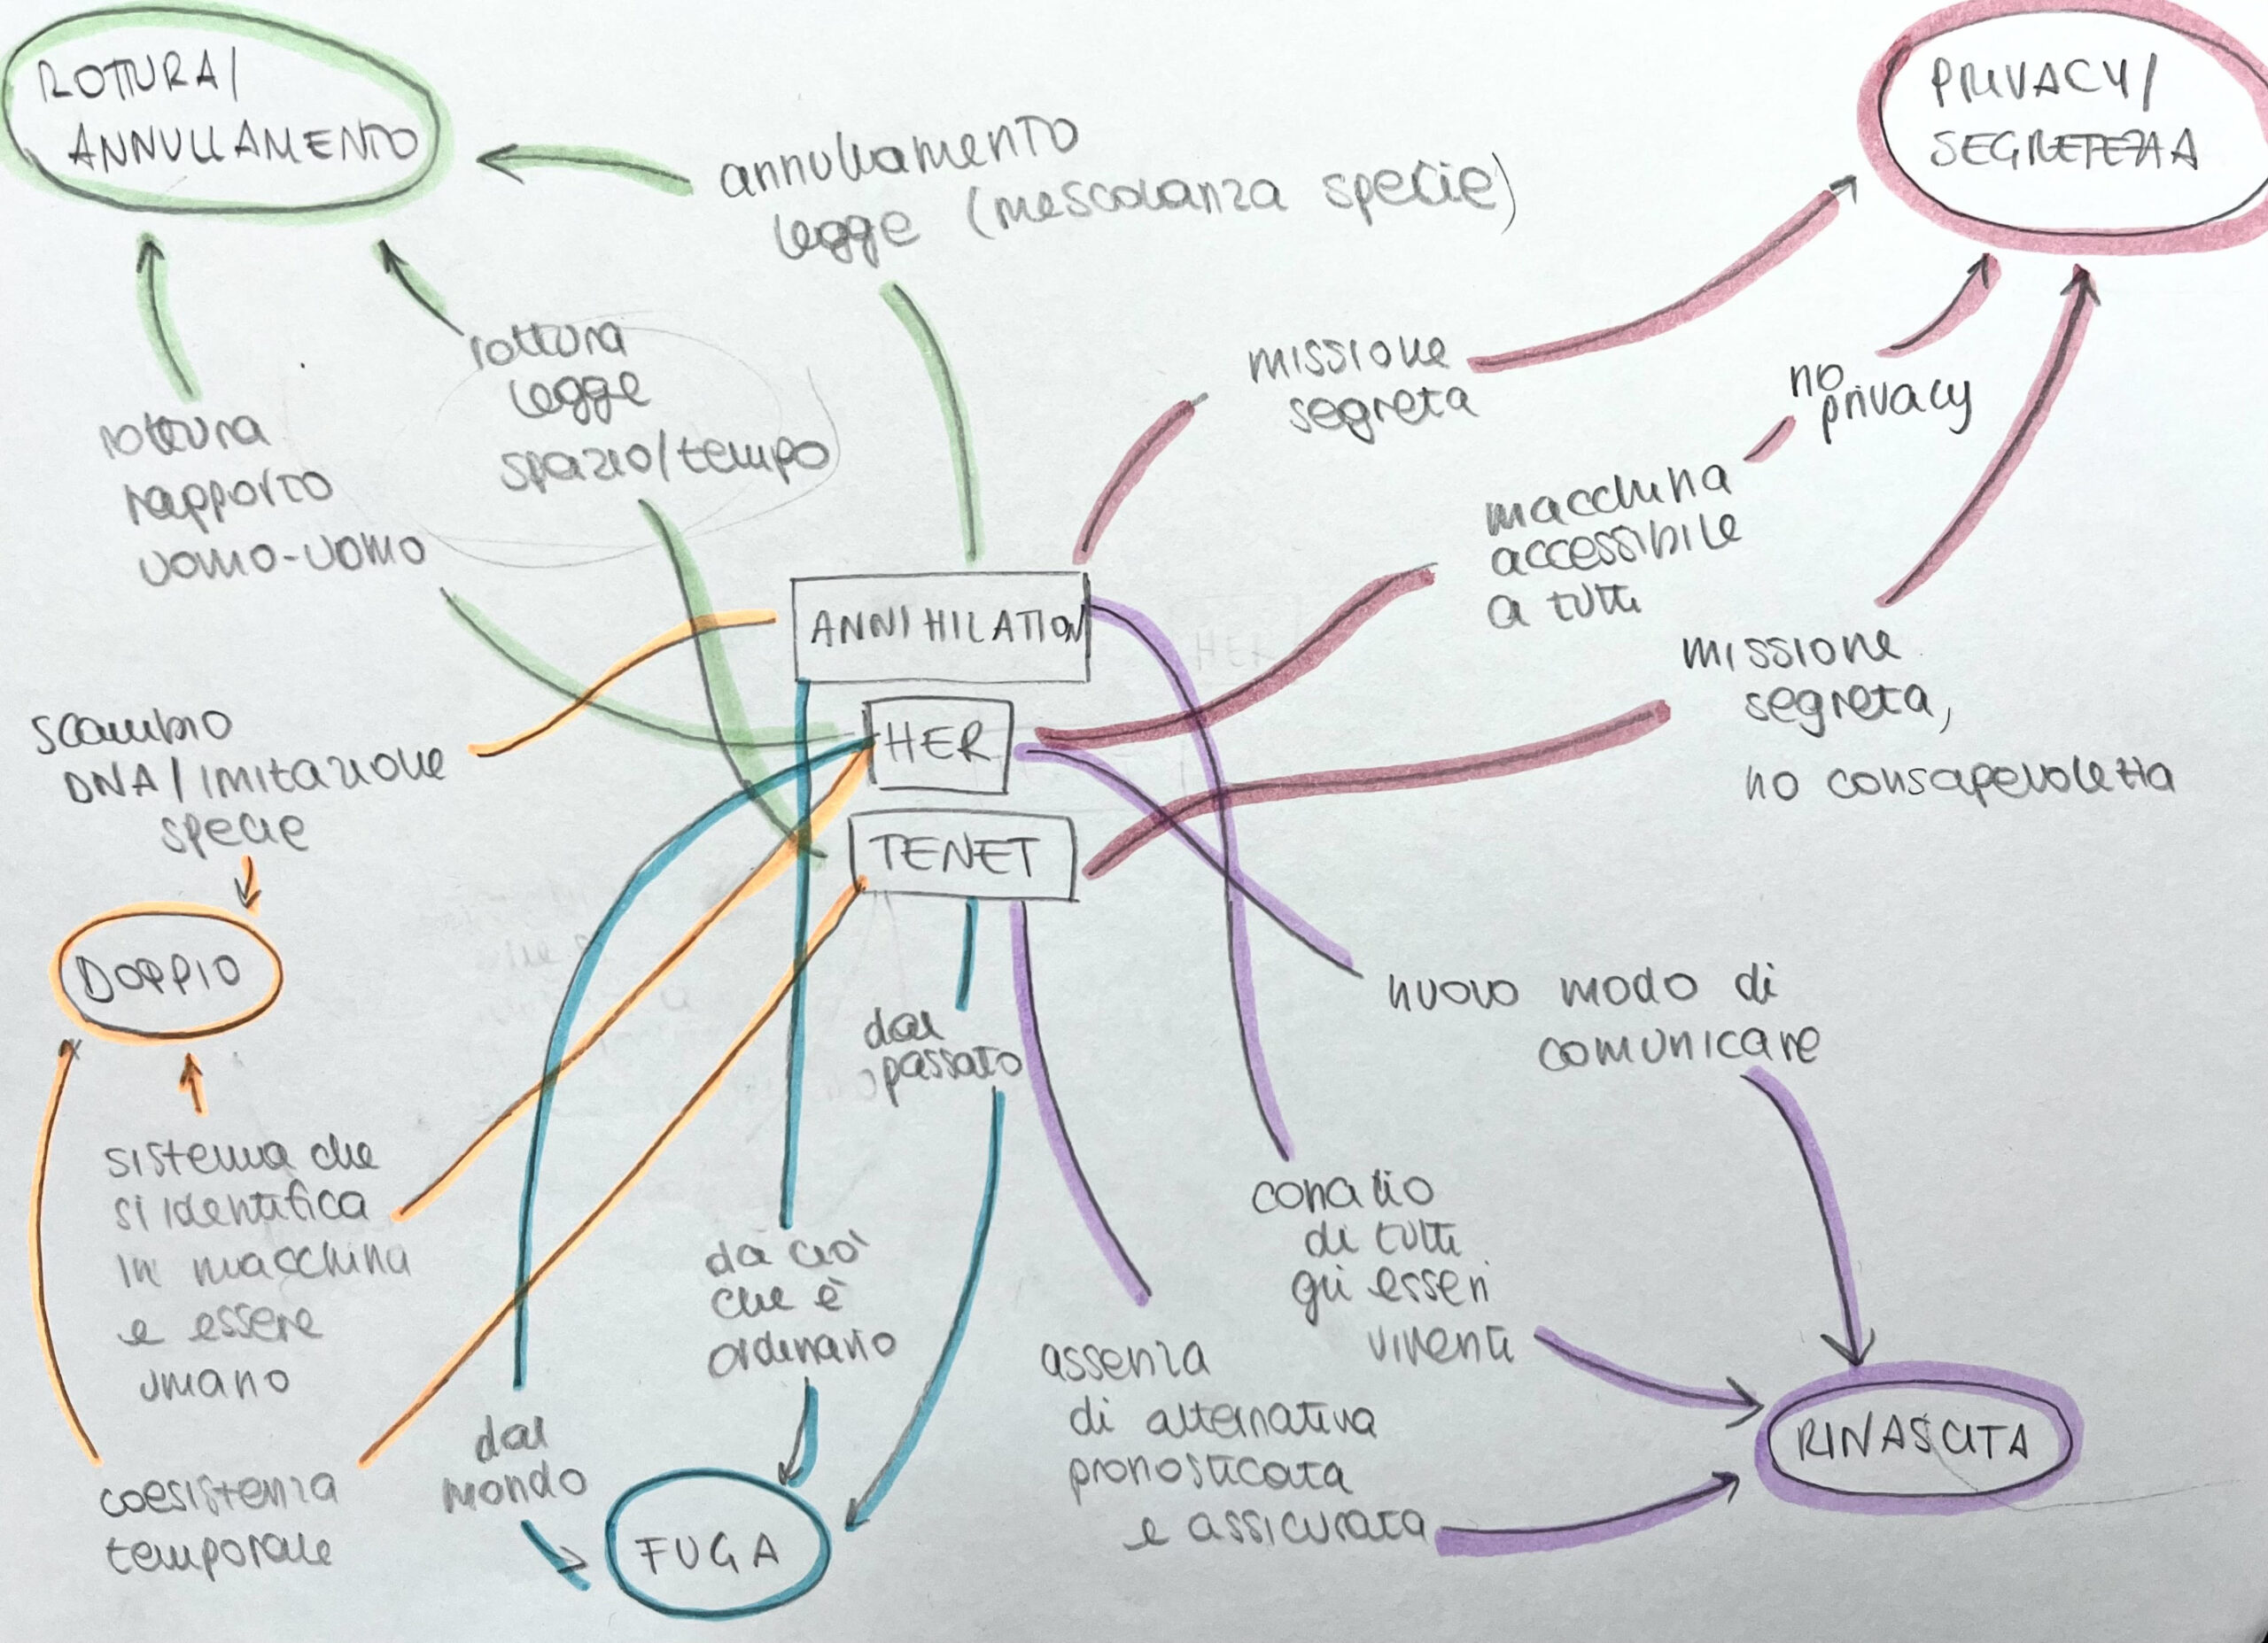 ROTTURA/
ANNULLAMENTO
annullamento
legge (mescolanza specie)
PRIVACY/
SEGRETEZZA
rottura
legge
spazio/tempo
rottura
rapporto
uomo-uomo
missione
segreta
no
privacy
macchina
accessibile
a tutti
missione
segreta,
no consapevolezza
ANNIHILATION
HER
TENET
scambio
DNA/imitazione
specie
DOPPIO
sistema che
si identifica
in macchina
e essere
umano
coesistenza
temporale
dal
mondo
da ciò
che è
ordinario
dal
passato
FUGA
nuovo modo di
comunicare
di tutti
gli esseri
viventi
assenza
di alternativa
pronosticata
e assicurata
RINASCITA